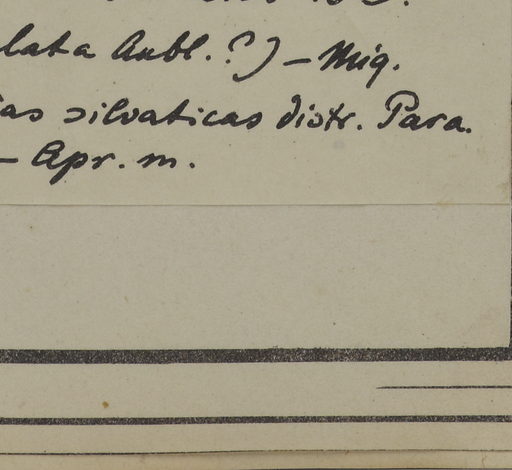 lata Aubl.?) – Miq.
as silvaticas distr. Para.
– Apr. m.